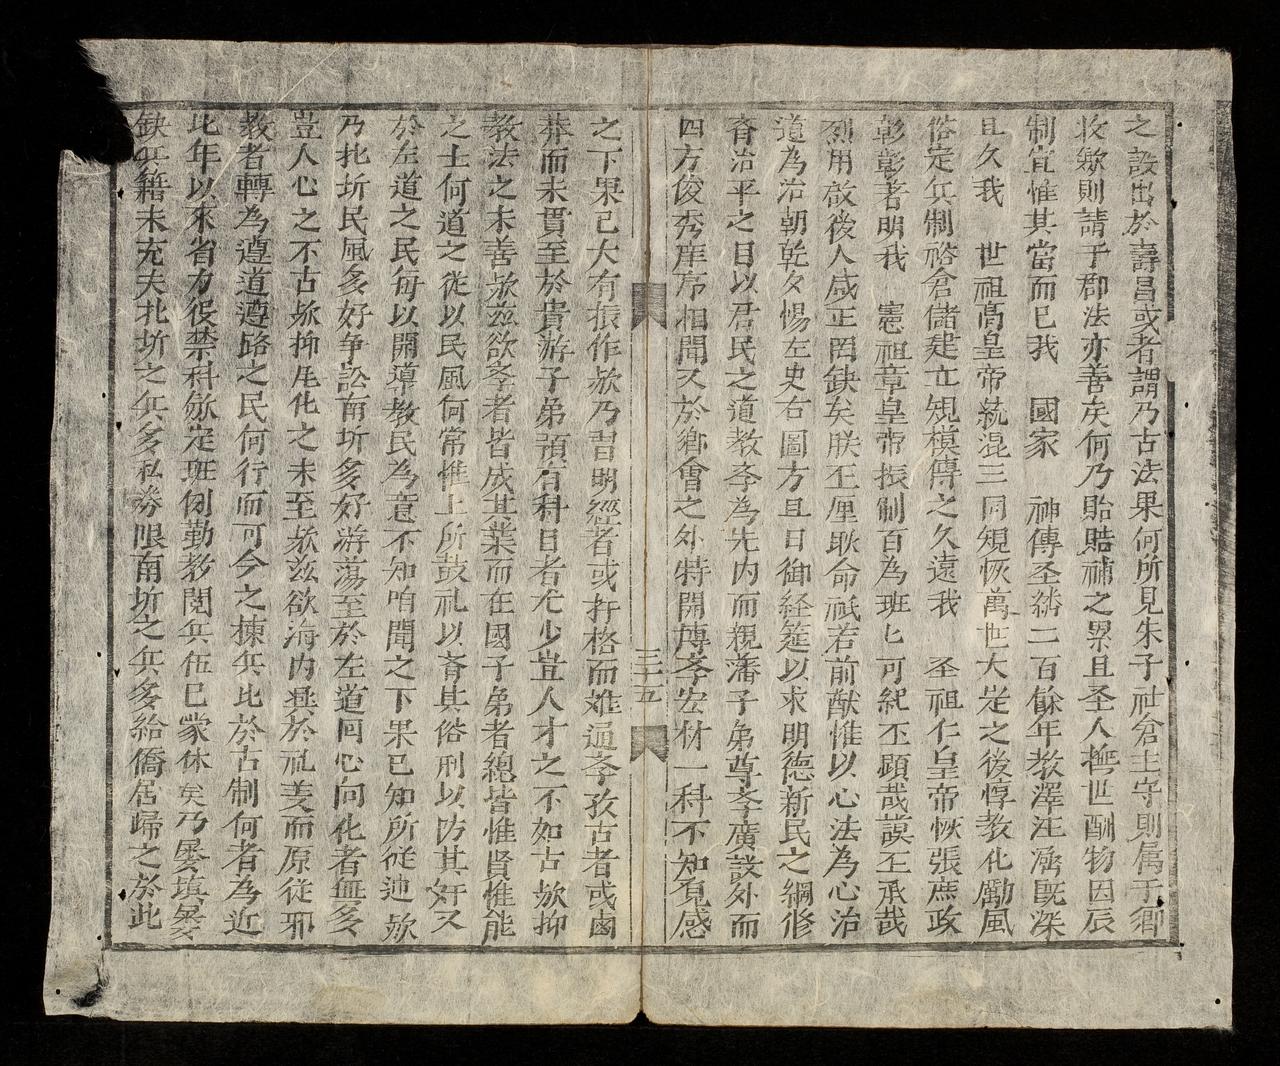 之設出於壽昌或者謂乃古法果何所見朱子社倉主守則属于卿
收歛則請于郡法亦善矣何乃貽賠補之累且圣人撫世酬物因辰
制宜惟其當而已我　國家　神傳圣継二百餘年教澤汪濊既深
且久我　世祖髙皇帝統混三同規恢萬世大定之後惇教化勵風
俗定兵制裕倉儲建立規模傳之久遠我　圣祖仁皇帝恢張庶政
彰彰者明我　憲祖章皇帝振制百為班匕可紀丕顕哉謨丕承哉
烈用啟後人咸正罔缺矣朕丕厘耿命祇若前猷惟以心法為心治
道為治朝乾夕惕左史右圖方且日御経筵以求明德新民之綱修
齊治平之目以君民之道教斈為先内而親藩子弟尊斈廣設外而
四方俊秀庠序相聞又於鄉會之外特開博斈宏材一科不知覔感
之下果已大有振作欤乃習明經者或扞格而难通斈孜古者或鹵
莽而未貫至於貴游子弟預有科目者尤少豈人才之不如古欤抑
教法之未善欤玆欲斈者皆成其業而在國子弟者總皆惟賢惟能
之士何道之從以民風何常惟上所鼓礼以齊其俗刑以防其奸又
於左道之民每以開導教民為意不知咱聞之下果已知所従违欤
乃北圻民風多好争訟南圻多好游荡至於左道囘心向化者無多
豈人心之不古欤抑风化之未至欤玆欲海内興於礼羙而原従邪
教者轉為遵道遵路之民何行而可今之揀兵比於古制何者為近
比年以來省力役禁科歛定班例勤教閱兵伍已蒙休矣乃屡填屡
缺兵籍未充夫北圻之兵多私券限南圻之兵多給僑居歸之於此
三十五